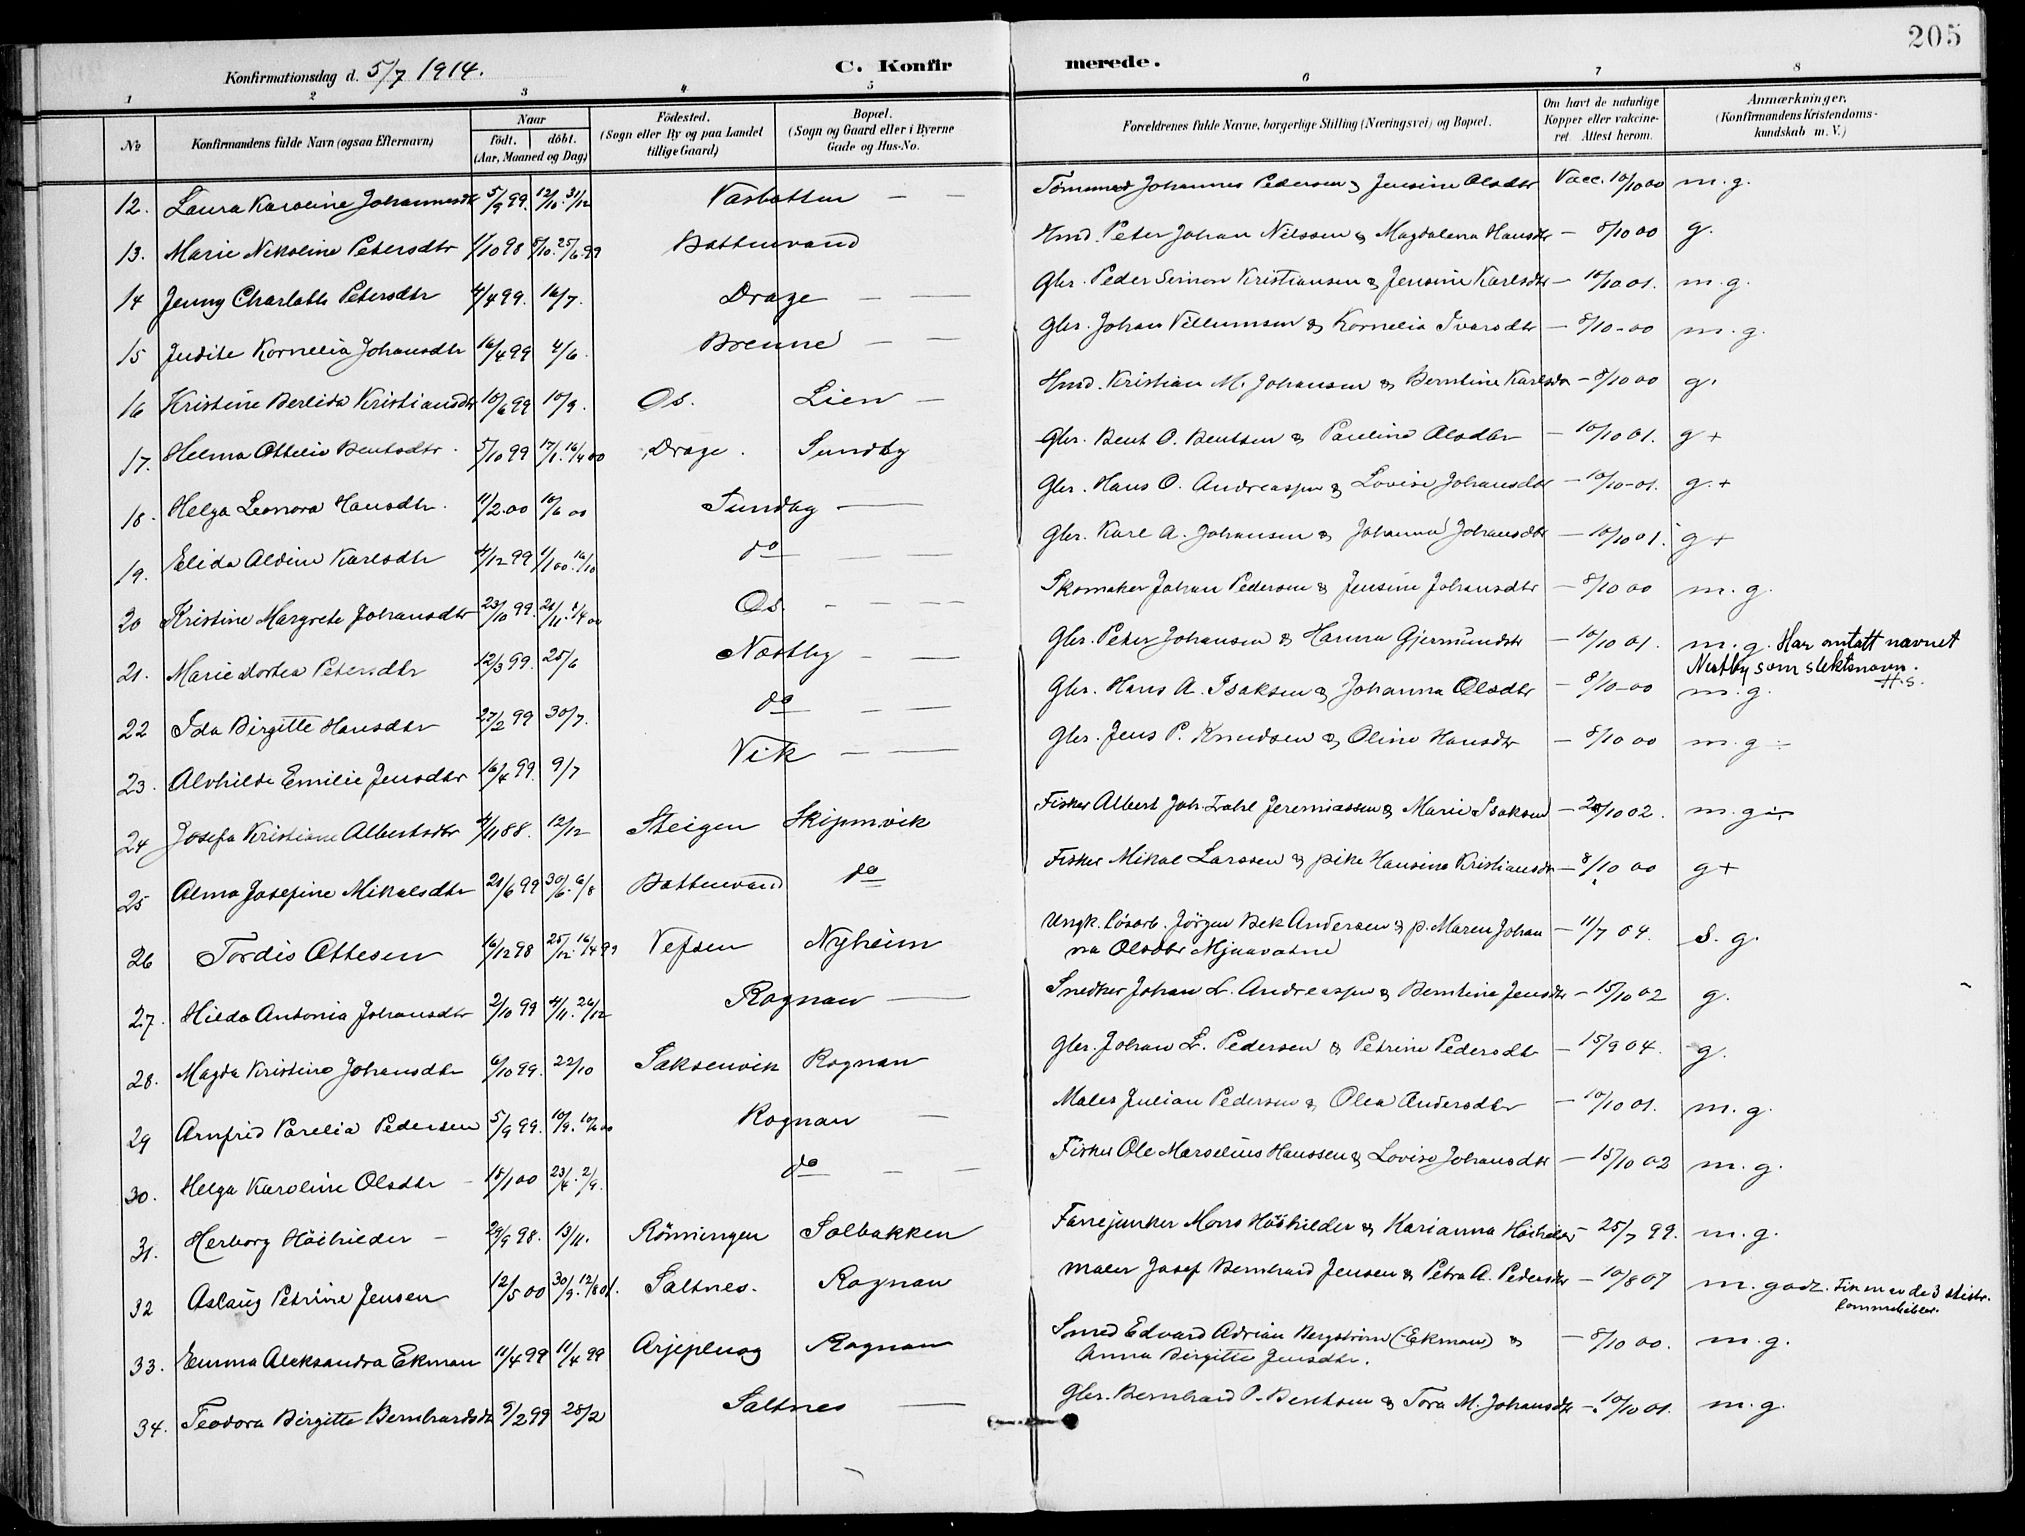 205
Konfirmationsdag d. 5/7 1914.
C. Konfirmerede.
1 2 3 4 5 6 7 8
№
Konfirmandens fulde Navn (ogsaa Efternavn)
Naar
født. døbt.
(Aar, Maaned og Dag)
Fødested.
(Sogn eller By og paa Landet
tillige Gaard)
Bopæl.
(Sogn og Gaard eller i Byerne
Gade og Hus-No.
Forældrenes fulde Navne, borgerlige Stilling (Næringsvei) og Bopæl.
Om havt de naturlige
Kopper eller vaccine-
ret. Attest herom.
Anmærkninger.
(Konfirmandens Kristendoms-
kundskab m. V.)
12. Laura Karoline Johannesdtr 5/9 99 12/10. 31/12 Vasbotten — — Tømmerd Johannes Pedersen & Jensine Olsdtr Vacc. 10/10 00 m. g.
13. Marie Nikoline Petersdtr 1/10 98 8/10. 25/6 99 Bottenvand Hmd. Peter Johan Nilssen & Magdalena Hansdtr — 8/10 00 g.
14 Jenny Charlotte Petersdtr 4/4 99. 16/7. Drage — — Gbr. Peder Simon Kristiansen & Jensine Karlsdtr — 10/10 01. m. g.
15 Judite Kornelia Johansdtr 16/4 99 4/6. Brenne — — Gbr. Johan Villumsen & Kornelia Ivarsdtr — 8/10-00 m. g.
16 Kristine Berlida Kristiansdtr 10/6 99 10/9. Os. Lien — Hmd. Kristian M. Johansen & Berntine Karlsdtr — 8/10 00 g.
17. Helma Ottelie Bentsdtr. 5/10 99 17/1. 16/4 00 Drage. Sundby Gbr. Bent O. Bentsen & Pauline Olsdtr — 10/10 01. g +
18. Helga Leonora Hansdtr. 11/2.00 10/6 00 Sundby — Gbr. Hans O. Andreassen & Lovise Johansdtr — 10/10-01. g. +
19. Elida Aldine Karlsdtr 4/12 99 1/1 00. 16/10 do — — Gbr. Karl A. Johansen & Johanna Johansdtr — 10/10 01. g +
20 Kristine Margrete Johansdtr 23/10 99. 21/11. 1/4 00 Os. — — — Skomaker Johan Pedersen & Jensine Johansdtr — 8/10 00 m. g.
21. Marie Dortea Petersdtr 12/3 99. 25/6 Nestby — — Gbr. Peter Johansen & Hanna Gjermundsdtr — 10/10 01. m. g. Har antatt navnet
Nestby som slektsnavn.
H.S.
22 Ida Birgitte Hansdtr 27/2 99 30/7. do — — Gbr. Hans A. Isaksen & Johanna Olsdtr — 8/10-00 m. g.
23. Alvhilde Emilie Jensdtr 16/4 99. 9/7 Vik — — Gbr. Jens P. Knudsen & Oline Hansdtr — 8/10 00 m. g ÷
24 Josefa Kristiane Albertsdtr 4/11 88. 12/12 Steigen Skipmvik Fisker Albert Joh. Dahl Jeremiassen & Marie Isaksen — 28/10 02. m. g ÷
25 Alma Josefine Mikalsdtr 21/6 99 30/6. 6/8 Bottenvand do Fisker Mikal Larssen & pike Hansine Kristiansdtr — 8/10 00 g +
26 Tordis Ottesen 16/12 98 25/12 16/4 99 Vefsen Nyheim Ungk. løsarb. Jørgen Bek Andersen & p. Maren Johan — 11/7 04. s. g.
na Olsdtr Mjaavatne
27. Hilda Antonia Johansdtr 2/10 99 4/11. 26/12 Rognan — Snedker Johan L. Andreassen & Berntine Jensdtr — 15/10 02 g.
28. Magda Kristine Johansdtr 6/10 99. 22/10 Saksenvik Rognan Gbr. Johan L. Pedersen & Petrine Pedersdtr — 15/9 04. g.
29 Arnfrid Parelia Pedersen 5/9 99. 10/9. 10/6 00 Rognan — Maler Julian Pedersen & Olea Andersdtr — 10/10 01. m. g.
30. Helga Karoline Olsdtr — 15/1 00 23/4. 2/9. do — — Fisker Ole Marselius Hanssen & Lovise Johansdtr — 15/10 02 m. g.
31. Herborg Høihilder — 29/9 98. 13/11. Rønningen Solbakken Fanejunker Mons Høihilder & Karianna Høihilder — 25/7 99. m. g.
32 Aslaug Petrine Jensen 12/5 00 30/9. 12/8 01. Saltnes. Rognan Maler Josef Bernhard Jensen & Petra A. Pedersdtr — 10/8 07 m. godt.
33. Emma Aleksandra Ekman 11/4 99 11/4 99 Arjepluog Rognan Smed Edvard Adrian Bergstrøm (Ekman) & — 8/10 00. m. g.
Anna Birgitte Jensdtr.
34. Teodora Birgitte Bernhardsdtr 9/2 99 28/2 Saltnes — Gbr. Bernhard P. Bentsen & Tora M. Johansdtr — 10/10 01. m. g.